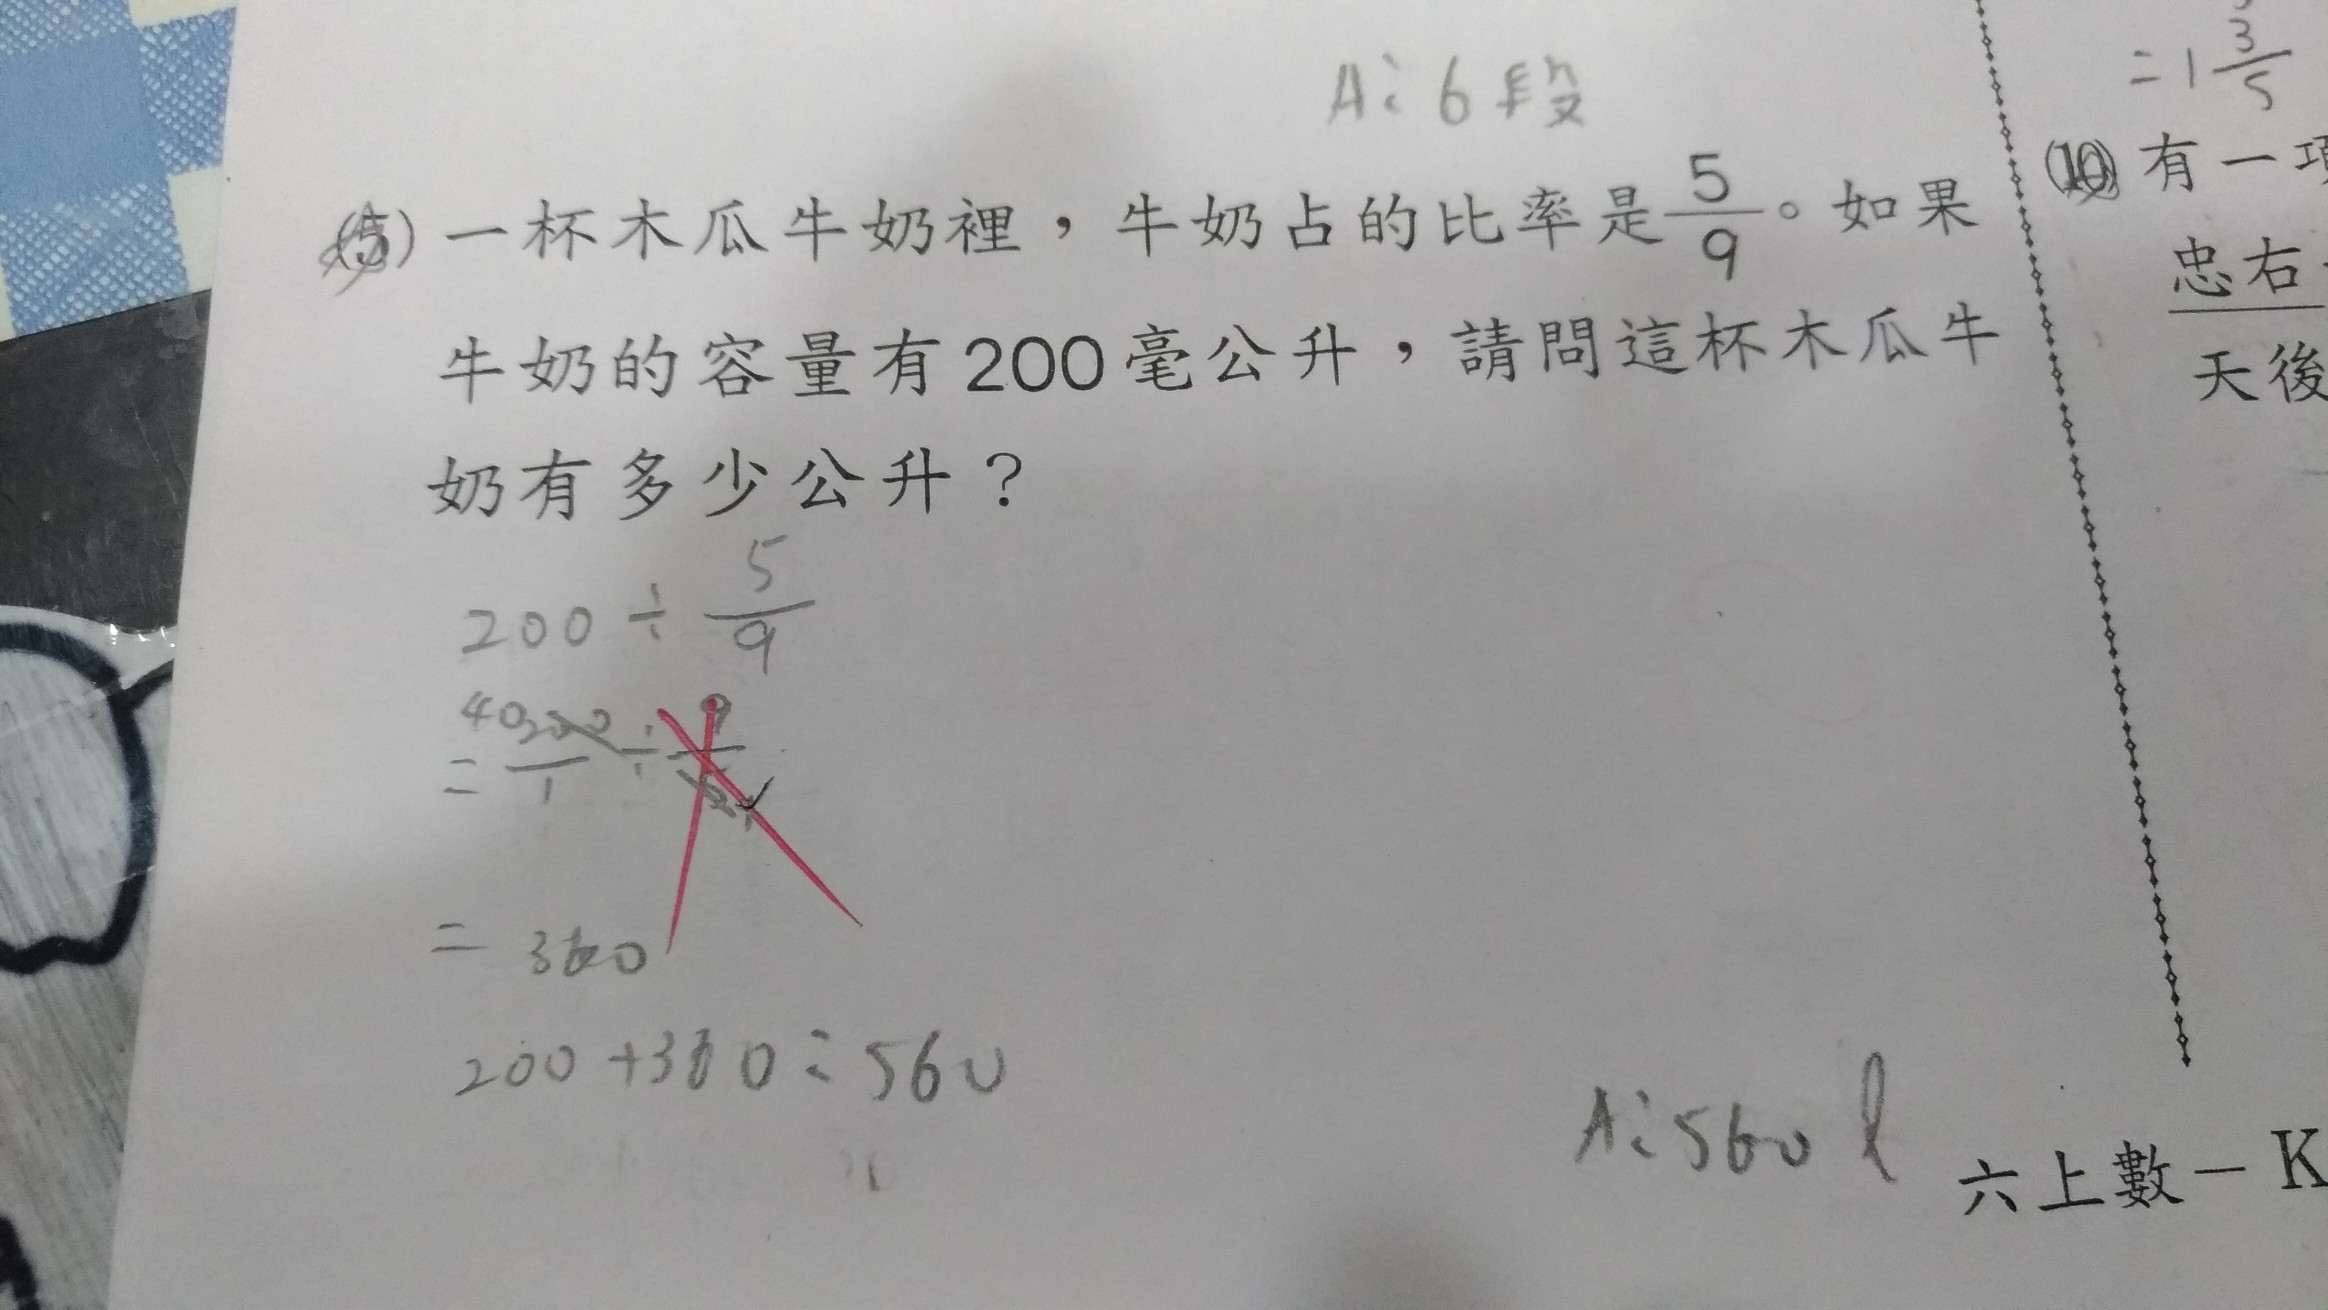 A：6段
(5) 一杯木瓜牛奶裡，牛奶占的比率是5/9。如果
牛奶的容量有200毫公升，請問這杯木瓜牛
奶有多少公升？
200 ÷ 5/9
= 40 200/1 ÷ 9/5 1
= 360
200 + 360 = 560
A：560 l
= 1 3/5
(10) 有一項
忠右
天後
六上數－K